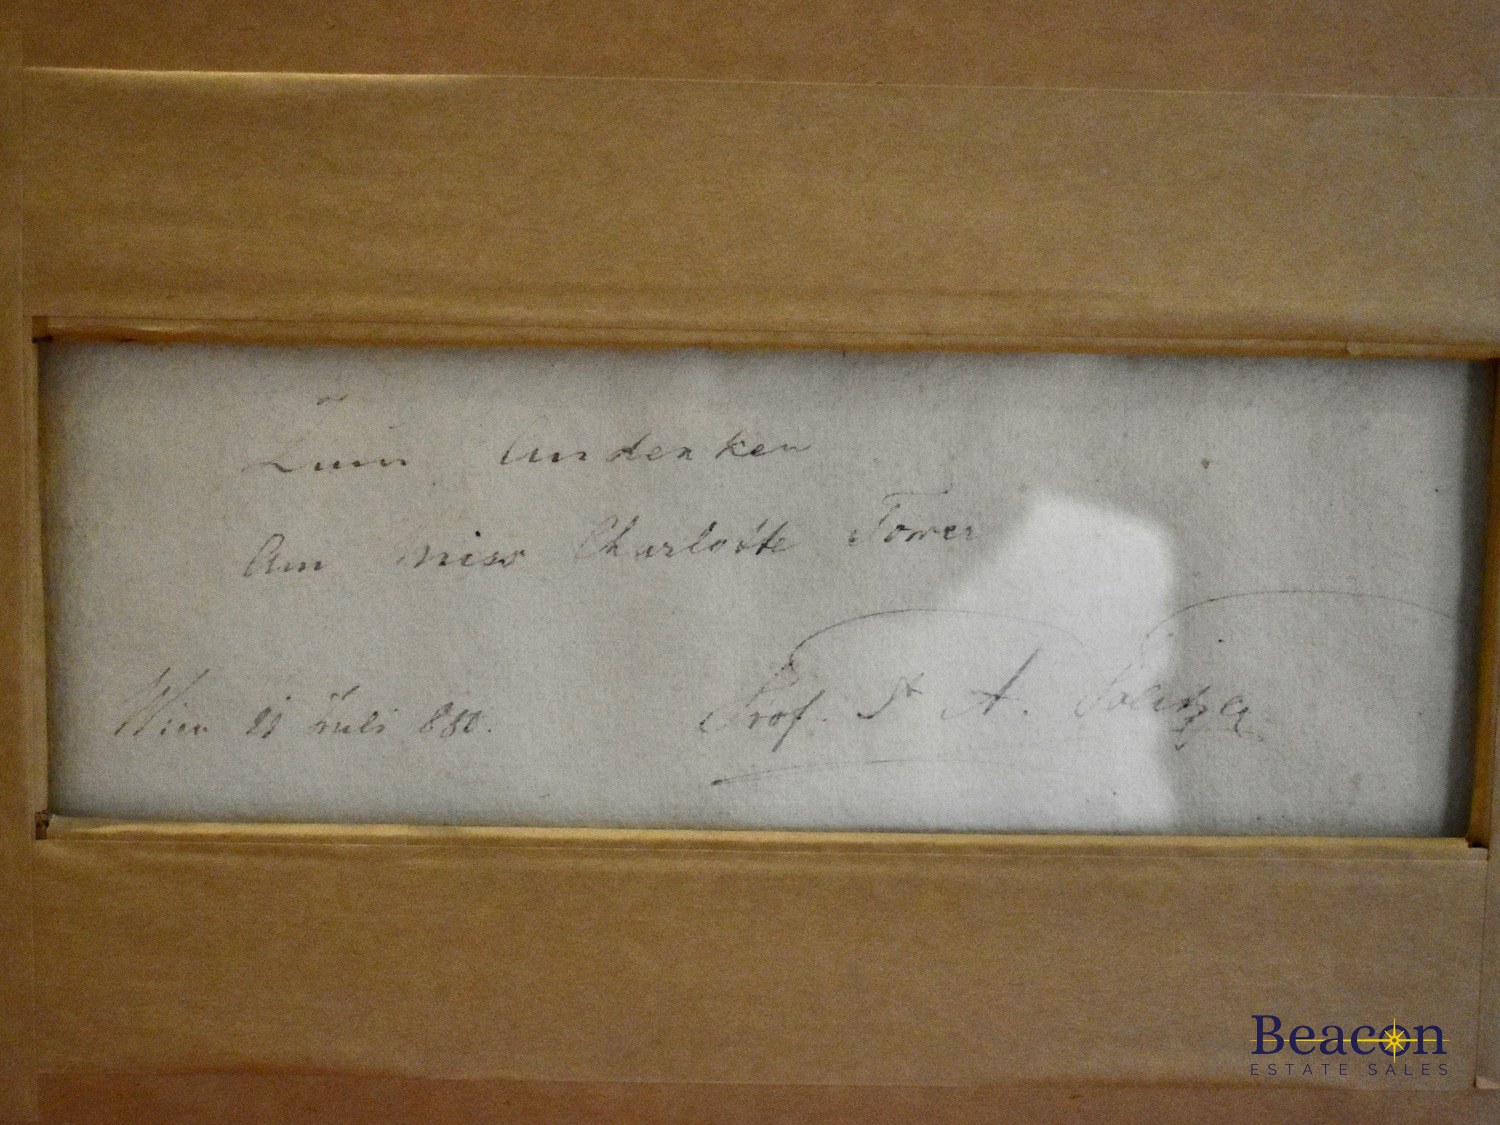 Zum Andenken
An Miss Charlotte Tower
Wien 21 Juli 880.
Prof. A.
Beacon
ESTATE SALES